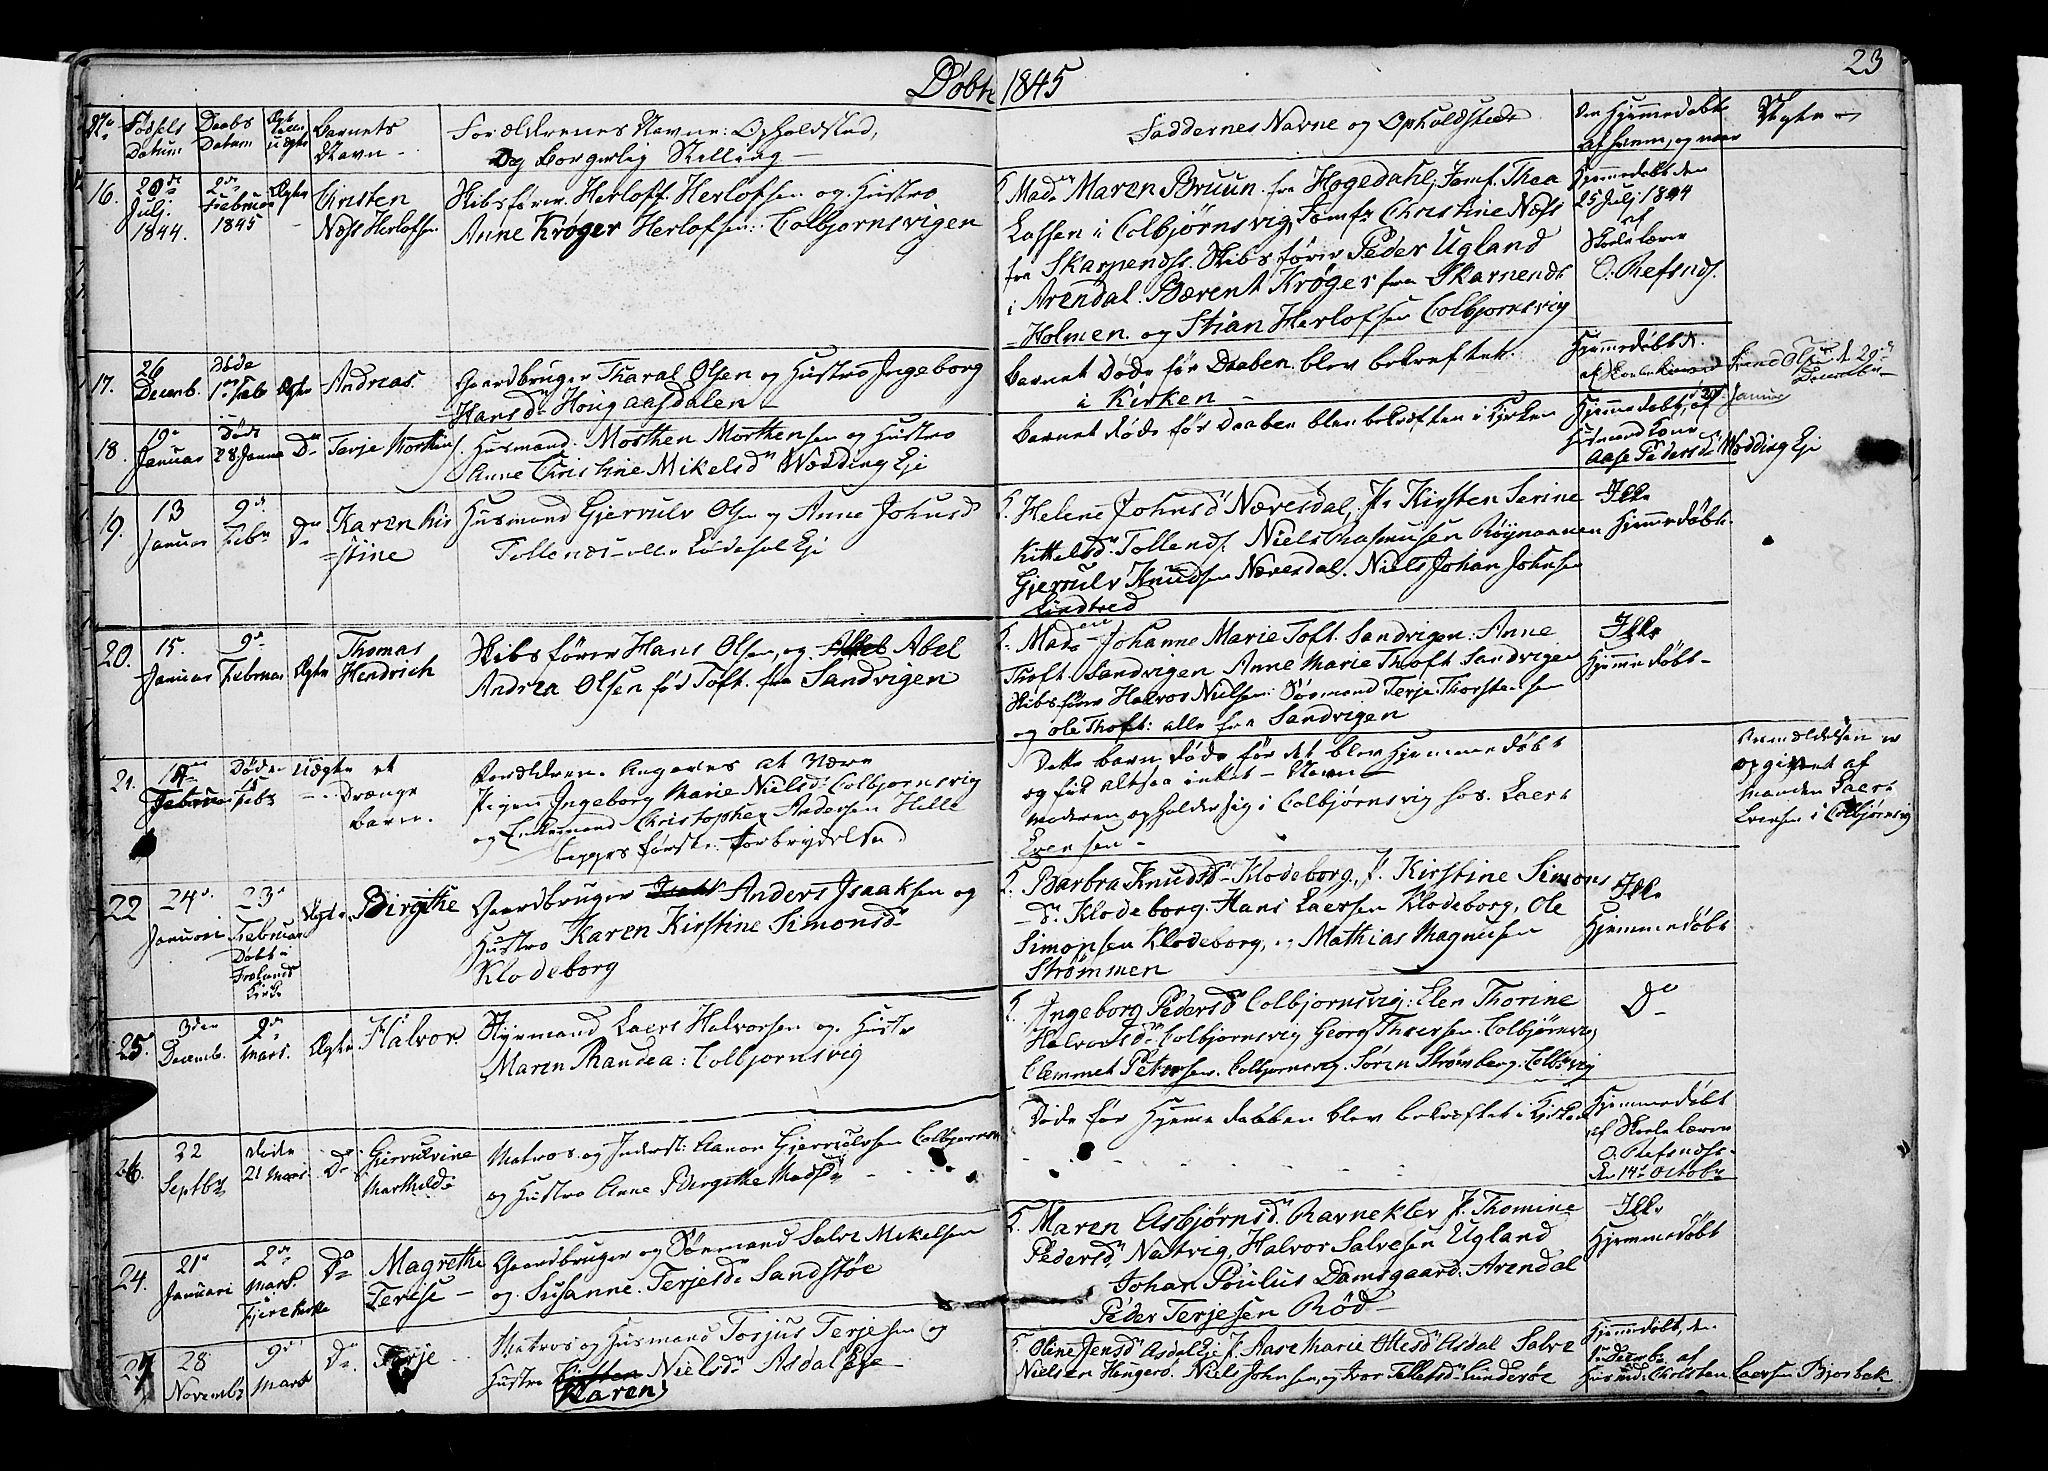 Døbte 1845
23
No
Fødsels Datum
Daabs Datum
Barnets Navn
Forældrenes Navne: Opholdsted,
Og Borgerlig Stilling
Faddernes Navne og Opholdsteder
Om hjemmedøbt
af hvem, og naar
16.
20de Julj. 1844.
2den Februar 1845
Ægte
Næss Herlofsen
Skibsfører Herloff Herlofsen og Hustro
Anne Krøger Herlofsen: Colbjornsvigen
Mad. Maren Bruun. fra Hogedahl; Jomf. Thea
Lassen i Colbjørnsvig, Jomfr Christine Næss
fra Skarpends. Skibsfører Peder Ugland
i Arendal. Bærent Krøger fra Skarnends
-Holmen. og Stian Herlofsen Colbjornsvig
Hjemmedøbt den
25 Julj 1844
af
Skolelærer
O. Refsnds.
17.
26 Decemb.
Døde 1ste Feb
Ægte
Andreas.
Gaardbruger Tharal Olsen og Hustro Ingeborg
Hansdr Hougaasdalen
Barnet Døde før Daaben blev bekreftet.
i Kirken
Hjemmedøbt d.
18.
19de Januar
Døde 28 Januar
Do
Terje Morthens.
Husmand. Morthen Morthensen og Hustro
Anne Christine Mikelsdr Wædding Eje
Barnet døde før Daaben blev bekræften i Kirken
Hjemmedøbt, af
Husmand Kone
Aase Pedersdr Wædding Eje
19.
13 Januar
9de Febr
Do
Karen Kir
=stine
Husmand Gjerrulv Olsen og Anne Johnsd
Tollenæs
Helene Johnsd Næresdal, J. Kirsten Serine
Kittelsd. Tollends. Niels Rasmusen Røynaanen
Gjerrulv Knudsen Næresdal. Niels Johan Johnsen
Lindtved
Ikke
Hjemmedøbt.
20.
15. Januar
9de Februar
Ægte
Thomas
Hendrich
Skibsfører Hans Olsen, og Abel
Andrea Olsen fød Toft. fra Sandvigen
Mad. Johanne Marie Toft. Sandvigen: Anne
Thoft. Sandvigen Anne Marie Thoft Sandvigen
Skibsfører Halvor Nielsen: Sømand Terje Thorstensen
og Ole Thoft: alle fra Sandvigen
Ikke
Hjemmedøbt-
21.
Februar
Døde 15 Febr
Uægte
et
Drænge
barn.
Forældren. Angaves at Være
Pigen Ingeborg Marie Nielsd: Colbjornsvig
og Enkemand Christopher Andersen Helle
begges første Forbrydelse.
Dette barn døde før det blev Hjemmedøbt
og fik altsaa intet - Navn
moderen opholder sig i Colbjørnsvig hos. Laers
Evensen -
Anmeldelsen er
opgivet af
manden Laers
Evensen i Colbjørnsvig
22
24de Januari
23de Februar
Døbt i
Frolands
Kirke
Ægte
Birgithe
Gaardbruger Anders Isaaksen og
Hustro Karen Kirstine Simonsdr
Klodeborg
Barbra Knudsdr Klodeborg, J. Kirstine Simons
-dr. Klodeborg. Hans Laersen Klodeborg, Ole
Simonsen Klodeborg, Mathias Magnusen
Strømmen
Ikke
Hjemmedøbt
25.
3den Decemb.
2den Mars.
Ægte
Halvor.
Styrmand Laers Halvorsen og Hustr
Maren Randea: Colbjornsvig
Ingeborg Pedersdr Colbjornsvig: Elen Thorine
Halvorsdr Colbjornsvig Georg Thversen. Colbjørnvig
Clemmet Petersen. Colbjornsvig. Søren Strømberg. Colbsvig
Do
26.
22 Septbr
døde 21 Mars
Do
Gierrulvine
Marthilde
Matros og Inderst: Aanon Gjerrulvsen Colbjornsv
og Hustro Anne Birgithe Madsdr
Døde før Hjemmedaaben blev bekræftet i Kirken
Hjemmedøbt
af Skole læreren
O. Refsnds.
den 14de Octobr
24.
21de Januari
2den Mars
Do
Magrethe
Terese -
Gaardbruger og Sømand Salve Mikelsen
og Susanne. Terjesdr Sandstøe
Maren Asbjørnsdr Ravneklev J. Thomine
Pedersdr Natvig, Halvor Salvesen Ugland
Johan Poulus Damsgaard. Arendal
Peder Terjesen Rød
Ikke
Hjemmedøbt
27
28 Novembr
9de Mars
Do
Terje
Matros og Husmand Torjus Terjesen og
Hustro Kirsten Nielsdr Asdal Eje
Karen
Oline Jensdr Asdal Eje J. Aase Marie Ottesdr Asdal Salve
Nielsen Hangerø. Niels Johnsen, og Ivar Tellefsd Lunderøe
Hjemmedøbt, den
1ste Decembr af
Husmd. Christen Laersen Bjorbek